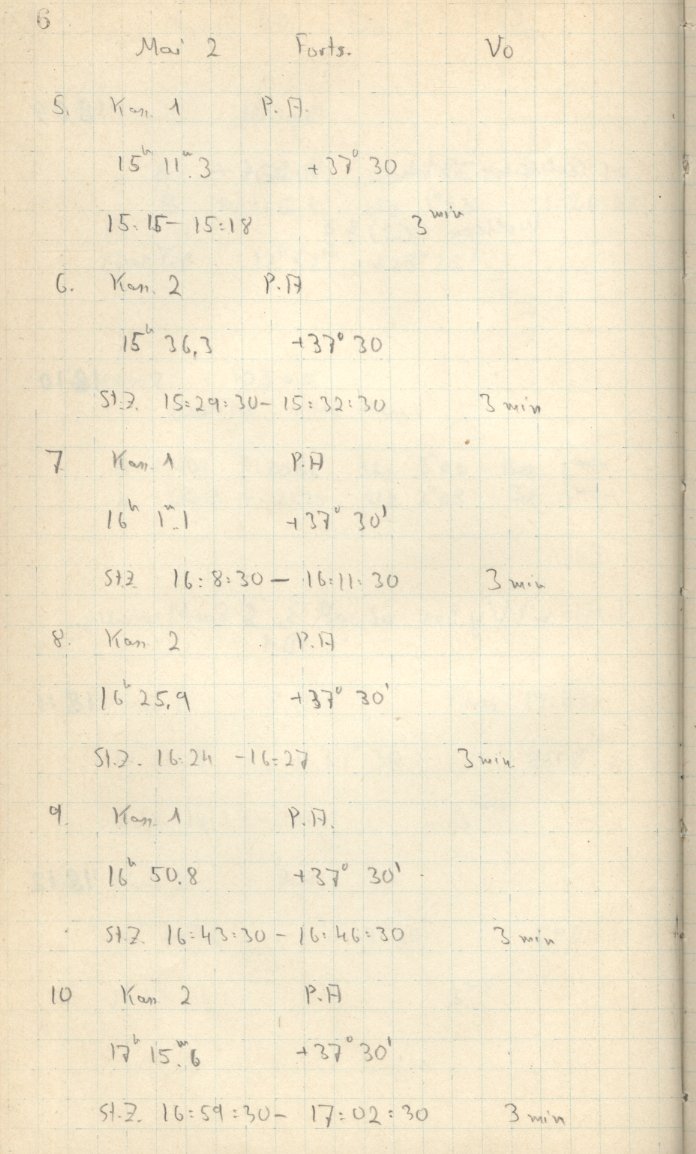 6
Mai 2 Forts. Vo
5. Kas. 1 P.A.
15ʰ 11ᵐ.3 +37° 30
15:15 – 15:18 3 min
6. Kas. 2 P.A
15ʰ 36,3 +37° 30
St.Z. 15:29:30 – 15:32:30 3 min
7 Kas. 1 P.A
16ʰ 1ᵐ.1 +37° 30'
St.Z 16:8:30 – 16:11:30 3 min
8. Kas. 2 P.A
16ʰ 25,9 +37° 30'
St.Z. 16:24 – 16:27 3 min.
9. Kas. 1 P.A.
16ʰ 50.8 +37° 30'
St.Z. 16:43:30 – 16:46:30 3 min
10 Kas 2 P.A
17ʰ 15ᵐ.6 +37° 30'
St.Z. 16:59:30 – 17:02:30 3 min